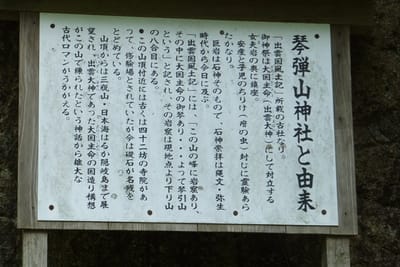 琴弾山神社と由来
「出雲国風土記」所載の古社なり。
御神祭は大国主命（出雲大神）にして対立する
女夫岩の奥に鎮座。
安産と子児のちりけ（疳の虫）封じに霊験あら
たかなり。
巨岩は石神そのもので、石神崇拝は縄文・弥生
時代から今日に及ぶ。
「出雲国風土記」には、「この山の峰に岩窟あり、
その中に大国主命の御琴あり・・・よって琴引山
という」と記され、その岩窟は現地点より下り山
の八合目にある。
●この山頂付近には古くは四十二坊の寺院があ
って、修験場とされていたが今は礎石が名残を
とどめている。
山頂からは三瓶山・日本海はるか隠岐島まで展
望され、出雲大神であった大国主命の国造り構想
がこの山で練られたという神話から雄大な
古代ロマンがうかがえる。